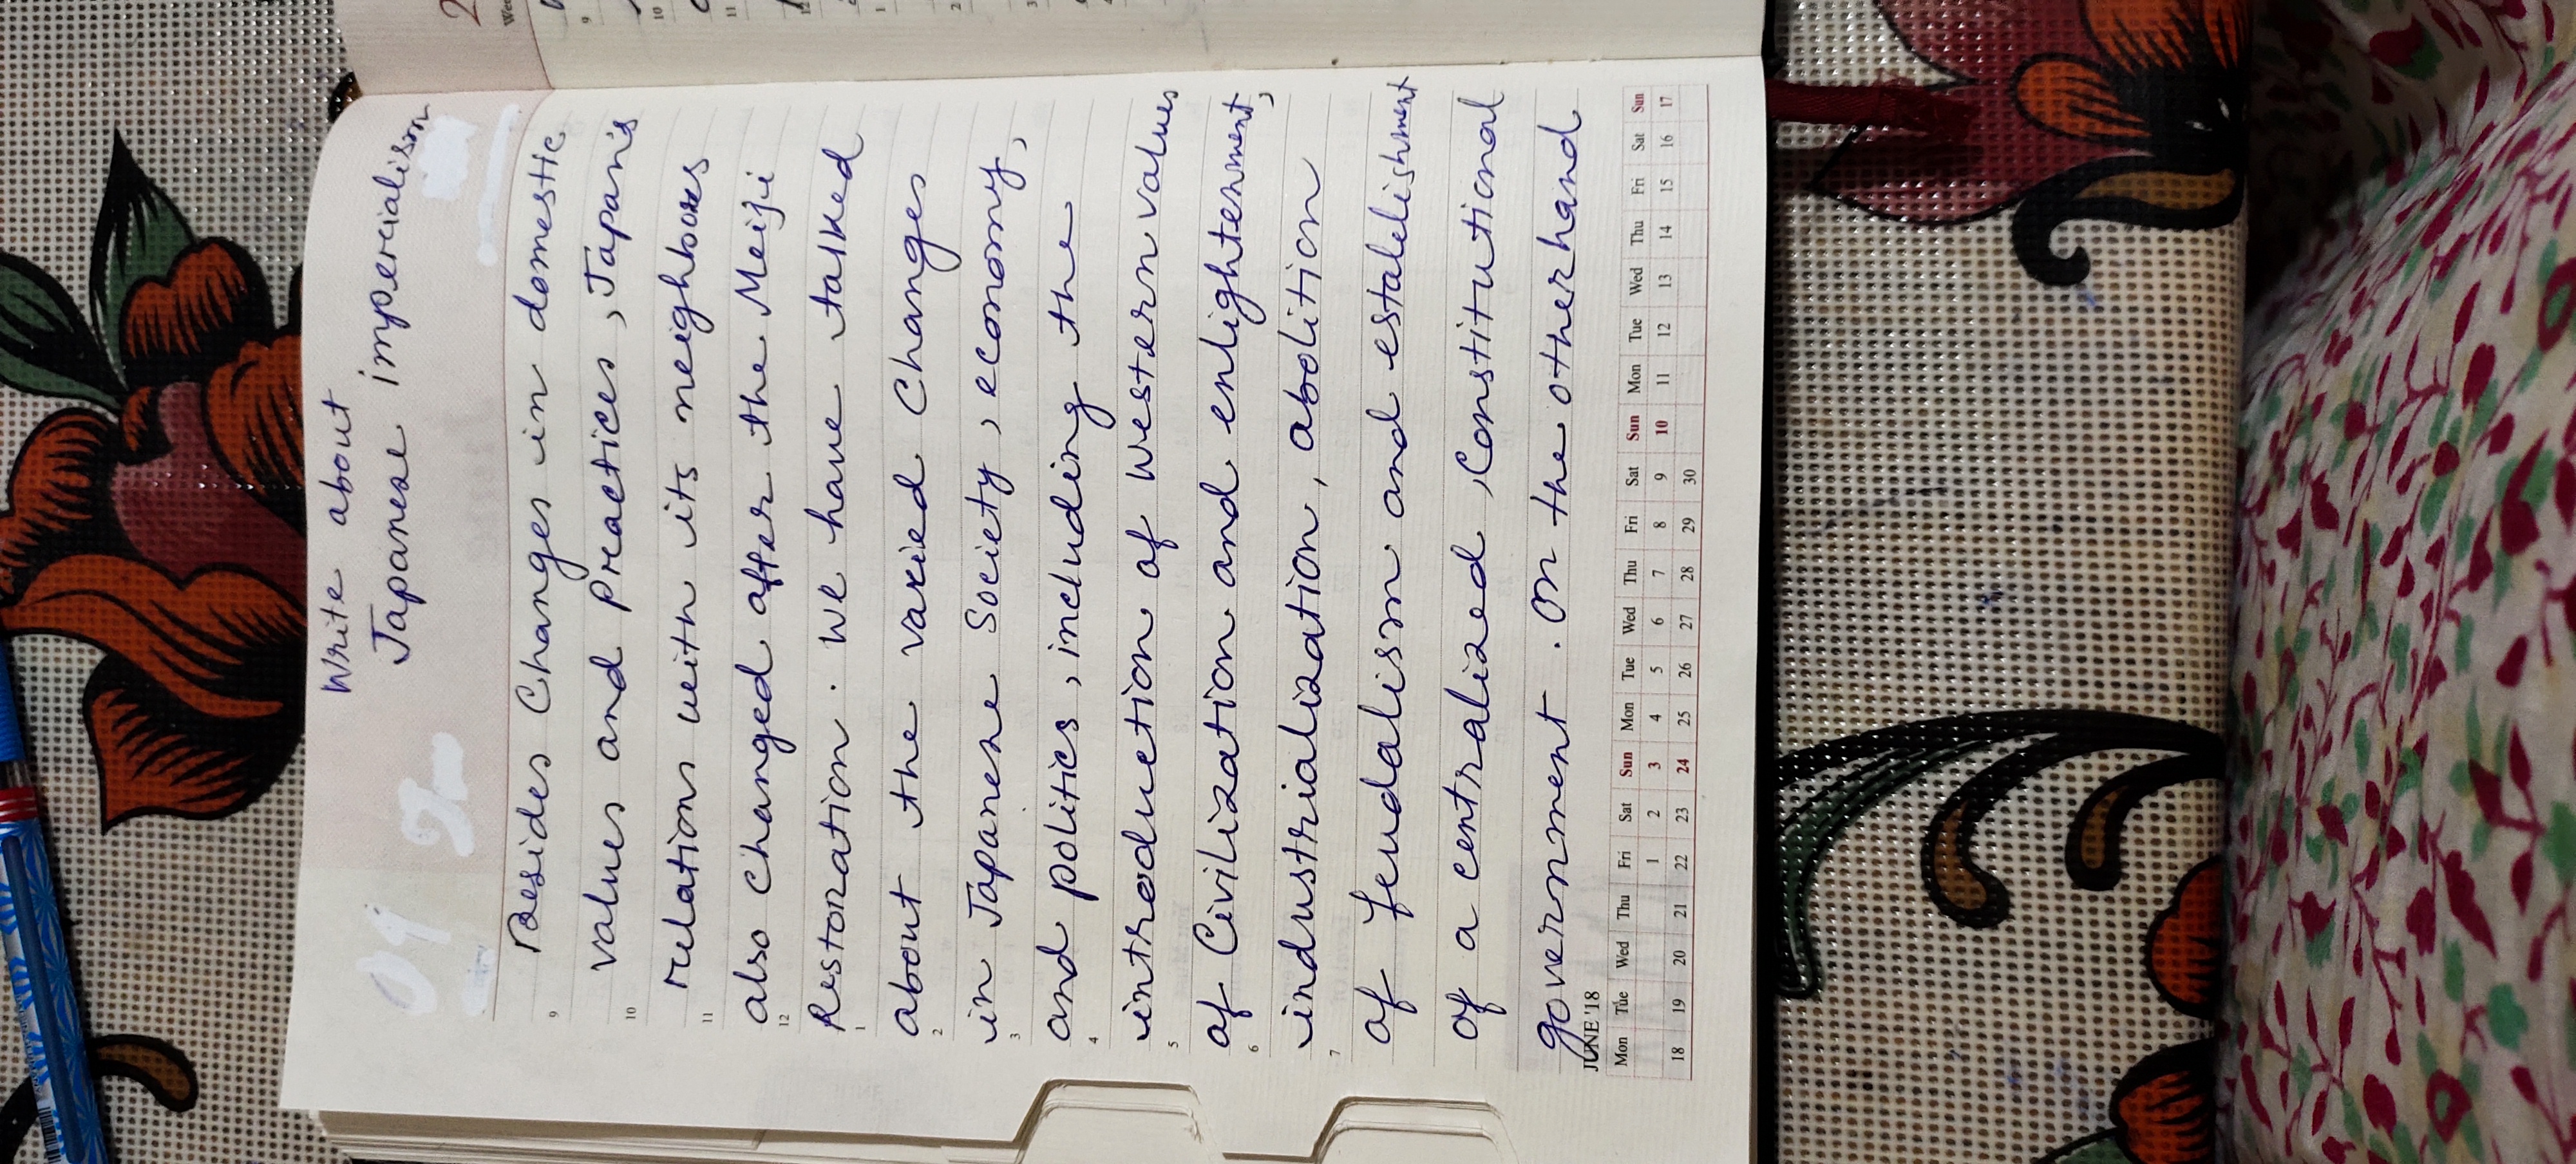 Write about
Japanese imperialism
Besides Changes in domestic
values and Practices, Japan's
relations with its neighbores
also changed after the Meiji
Restoration. We have talked
about the varied Changes
in Japanese Society, economy,
and politics, including the
introduction of western values
of Civilization and enlightenment,
industrialization, abolition
of feudalism and establishment
of a centralized, Constitutional
government. On the otherhand
9
10
11
12
1
2
3
4
5
6
7
JUNE '18
Mon Tue Wed Thu Fri Sat Sun Mon Tue Wed Thu Fri Sat Sun Mon Tue Wed Thu Fri Sat Sun
1 2 3 4 5 6 7 8 9 10 11 12 13 14 15 16 17
18 19 20 21 22 23 24 25 26 27 28 29 30
2
9
10
11
12
1
2
3